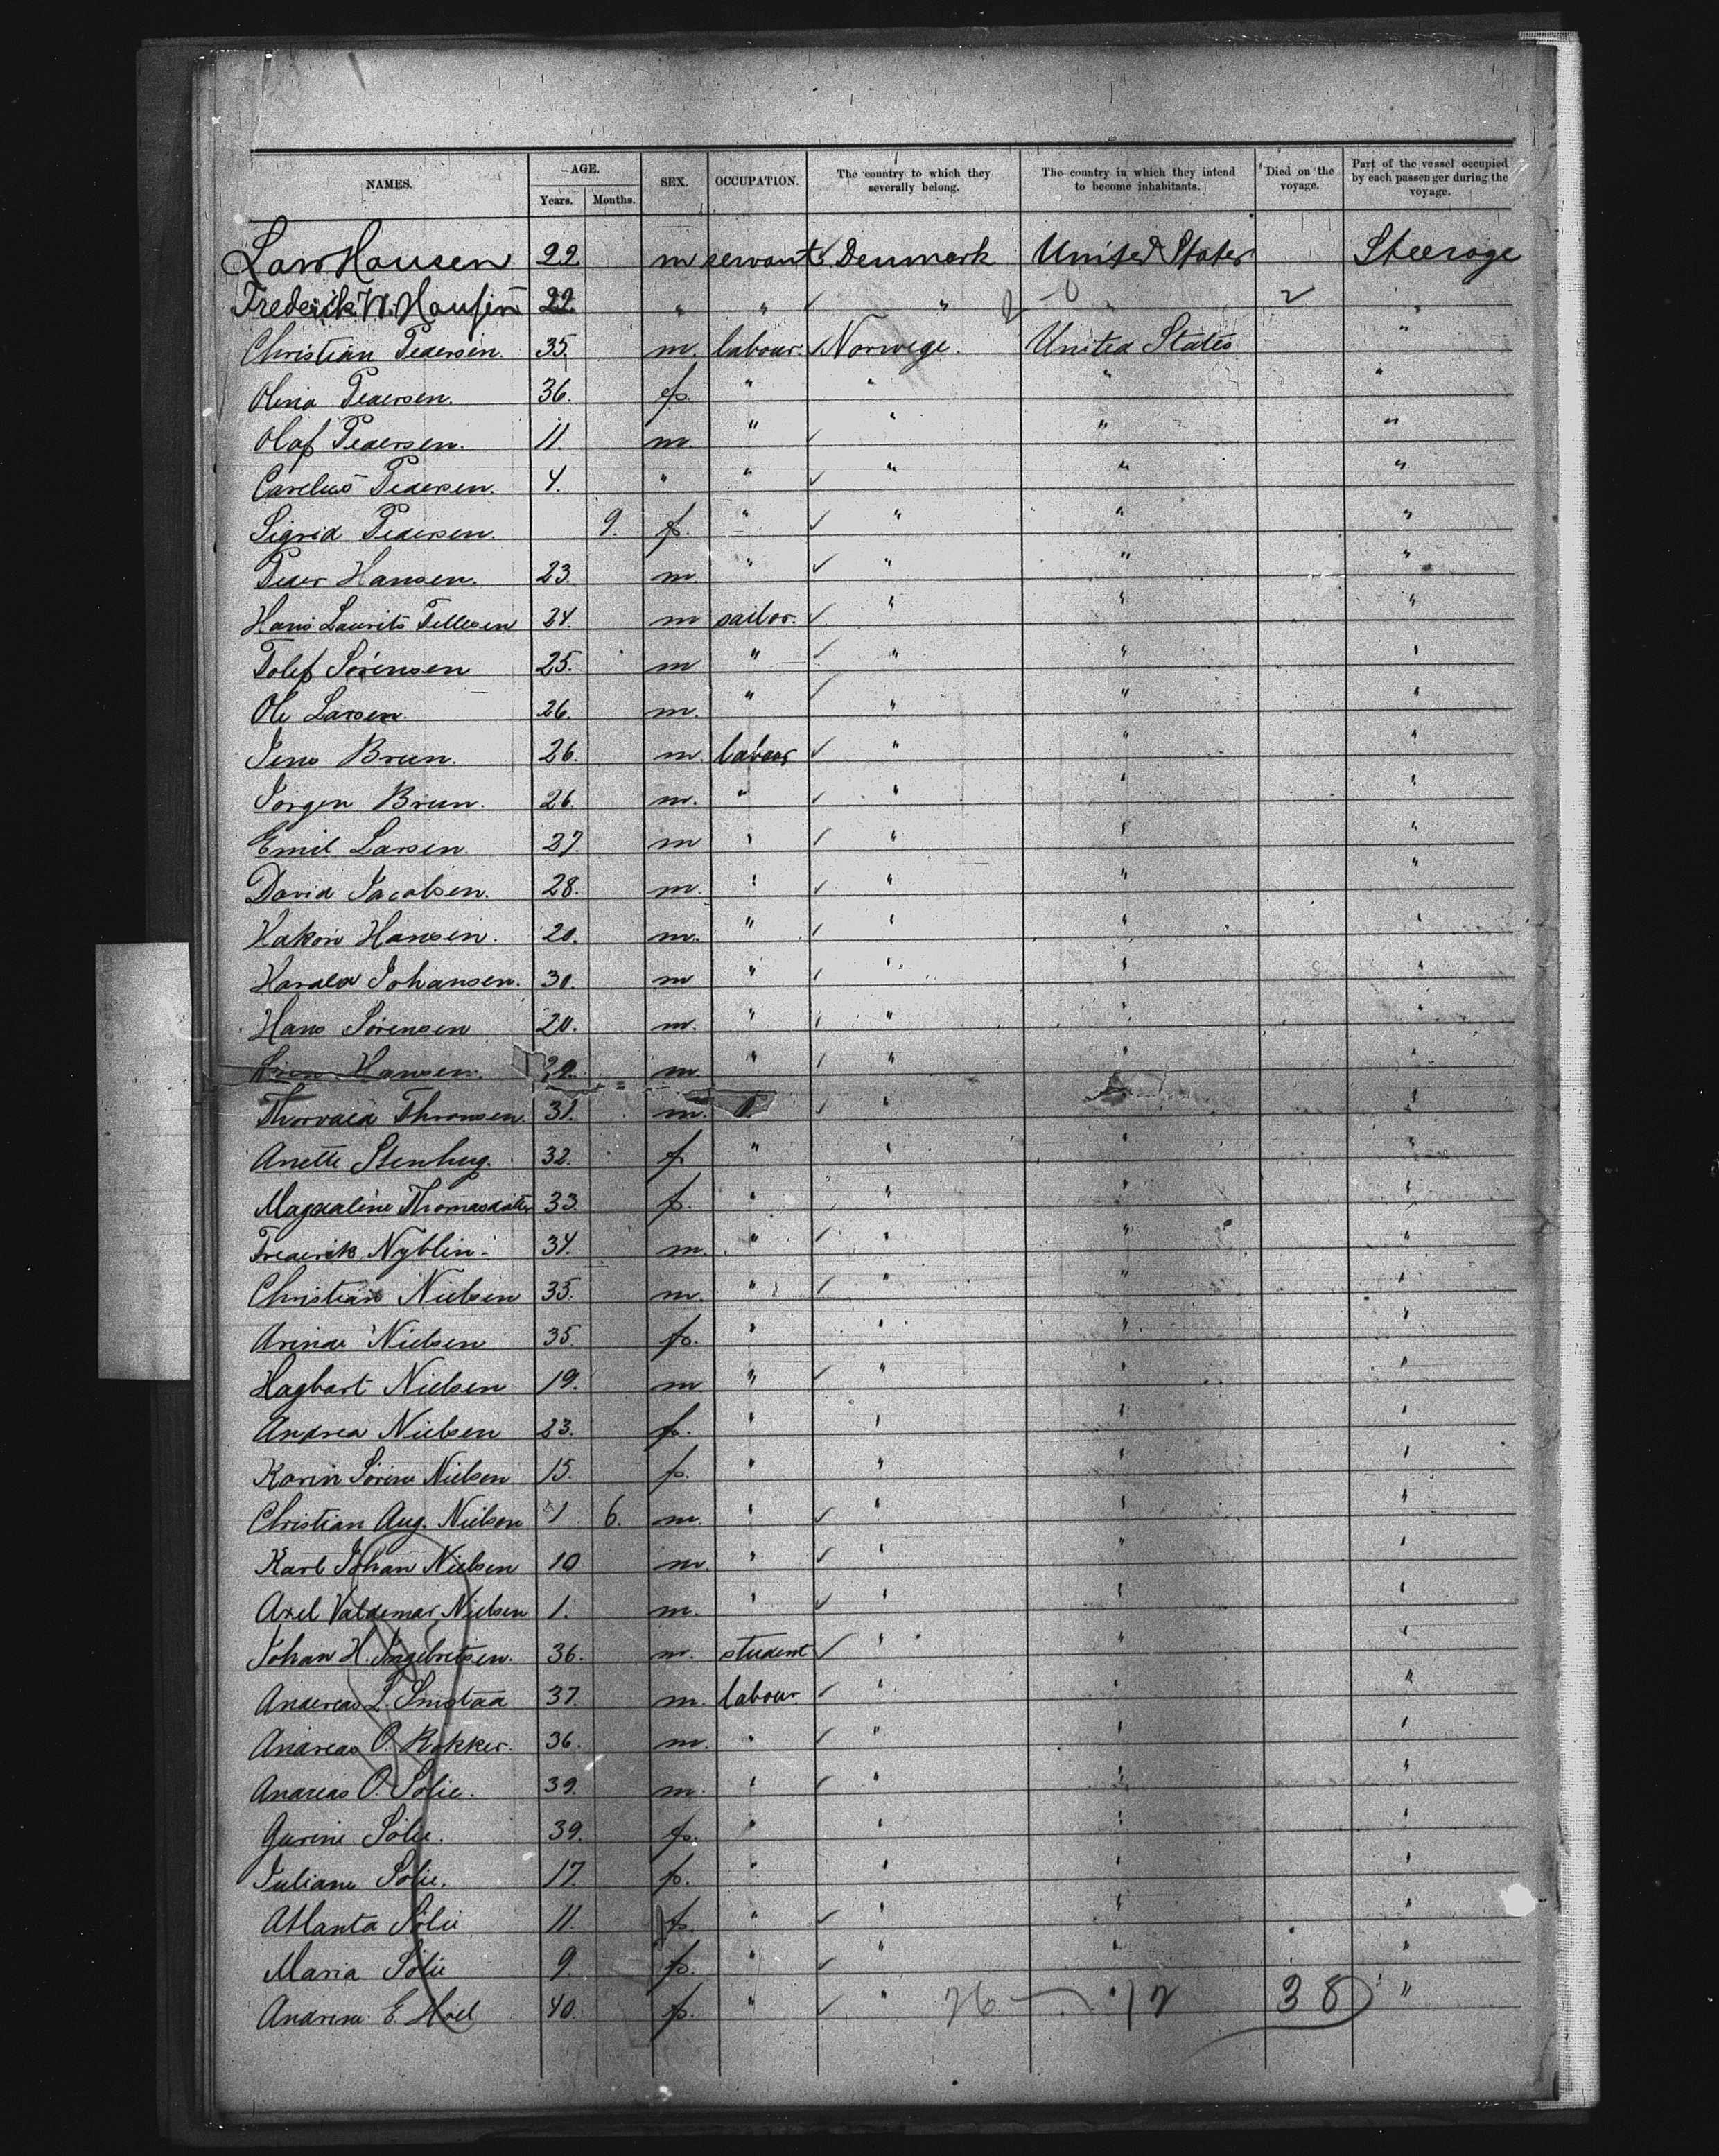 NAMES. AGE. SEX. OCCUPATION. The country to which they severally belong. The country in which they intend to become inhabitants. Died on the voyage. Part of the vessel occupied by each passenger during the voyage.
Years. Months.
Lars Hansen 22 m servant ✓ Denmark United States Steerage
Frederik W. Hansen 22 " " ✓ " 2 - 0 " 2 "
Christian Pedersen. 35. m. labour. ✓ Norwege. United States "
Olina Pedersen. 36. f. " " " "
Olaf Pedersen. 11. m. " ✓ " " "
Carelius Pedersen. 4. " " ✓ " " "
Sigrid Pedersen. 9. f. " ✓ " " "
Peder Hansen. 23. m. " ✓ " " "
Hans Laurits Tellesen 24. m sailor. ✓ " " "
Tolef Sørensen 25. m " ✓ " " "
Ole Larsen. 26. m. " ✓ " " "
Jens Brun. 26. m. labour ✓ " " "
Jørgen Brun. 26. m. " ✓ " " "
Emil Larsen. 27. m " ✓ " " "
David Jacobsen. 28. m. " ✓ " " "
Hakon Hansen. 20. m. " ✓ " " "
Harald Johansen. 30. m " ✓ " " "
Hans Sørensen 20. m. " ✓ " " "
Hansen. m. " ✓ " " "
Thorvald Thronsen. 31. m. ✓ " "
Anette Stenberg. 32. f. " " " "
Magdaline Thomasdatter 33. f. " " " "
Frederik Nyblin. 34. m. " ✓ " " "
Christian Nielsen 35. m. " ✓ " " "
Arinde Nielsen 35. f. " " " "
Hagbart Nielsen 19. m " ✓ " " "
Andrea Nielsen 23. f. " " " "
Karin Sørine Nielsen 15. f. " " " "
Christian Aug. Nielsen 1 6. m. " ✓ " " "
Karl Johan Nielsen 10 m. " ✓ " " "
Axel Valdemar Nielsen 1. m. " ✓ " " "
Johan H. Ingebretsen. 36. m. student ✓ " " "
Andreas L. Smstad 37. m. labour. ✓ " " "
Andreas O. Rokker. 36. m. " ✓ " " "
Andreas O. Solie. 39. m. " ✓ " " "
Gurine Solie. 39. f. " " " "
Juliane Solie. 17. f. " " " "
Atlanta Solie 11. f. " ✓ " " "
Maria Solie 9. f. " ✓ " " "
Andrine E. Hoel 40. f. " ✓ " 26 - " 12 38 "